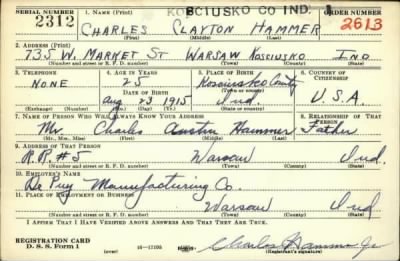 SERIAL NUMBER 1. NAME (Print) KOSCIUSKO CO IND. 1 ORDER NUMBER
2312 CHARLES CLAYTON HAMMER 2613
(First) (Middle) (Last)
2. ADDRESS (Print)
735 W. MARKET ST WARSAW KOSCIUSKO IND
(Number and street or R. F. D. number) (Town) (County) (State)
3. TELEPHONE 4. AGE IN YEARS 5. PLACE OF BIRTH 6. COUNTRY OF CITIZENSHIP
NONE 25 Kosciusko County
DATE OF BIRTH (Town or county)
Aug 23 1915 Ind. U.S.A.
(Exchange) (Number) (Mo.) (Day) (Yr.) (State or country)
7. NAME OF PERSON WHO WILL ALWAYS KNOW YOUR ADDRESS 8. RELATIONSHIP OF THAT PERSON
Mr. Charles Austin Hammer Father
(Mr., Mrs., Miss) (First) (Middle) (Last)
9. ADDRESS OF THAT PERSON
R.R. #5 Warsaw Ind.
(Number and street or R. F. D. number) (Town) (County) (State)
10. EMPLOYER'S NAME
De Puy Manufacturing Co.
11. PLACE OF EMPLOYMENT OR BUSINESS
Warsaw Ind
(Number and street or R. F. D. number) (Town) (County) (State)
I AFFIRM THAT I HAVE VERIFIED ABOVE ANSWERS AND THAT THEY ARE TRUE.
REGISTRATION CARD
D. S. S. Form 1 16—17105 Charles Hammer Jr
(Registrant's signature)